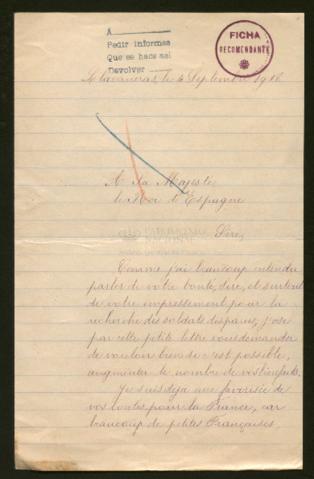 A
Pedir informes
Que se hace así
Devolver
FICHA
RECOMENDANTE
le 4 Septembre 1916
A Sa Majesté
le Roi d'Espagne
PATRIMONIO
NACIONAL
Sire,
Comme j'ai beaucoup entendu
parler de votre bonté, Sire, et surtout
de votre empressement pour la
recherche des soldats disparus, j'ose
par cette petite lettre vous demander
de vouloir bien si c'est possible,
augmenter le nombre de vos bienfaits.
Je suis déjà une favorisée de
vos bontés pour la France, car
beaucoup de petites Françaises